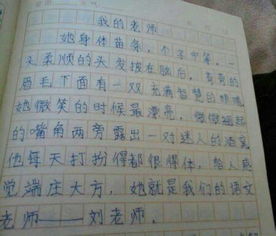 我的老师
她身体苗条，个子中等，一
头柔顺的头发披在脑后，弯弯的
眉毛下面有一双充满智慧的眼睛
她微笑的时候最漂亮，微微翘起
的嘴角两旁露出一对迷人的酒窝
他每天打扮得都很得体，给人感
觉端庄大方，她就是我们的语文
老师——刘老师，